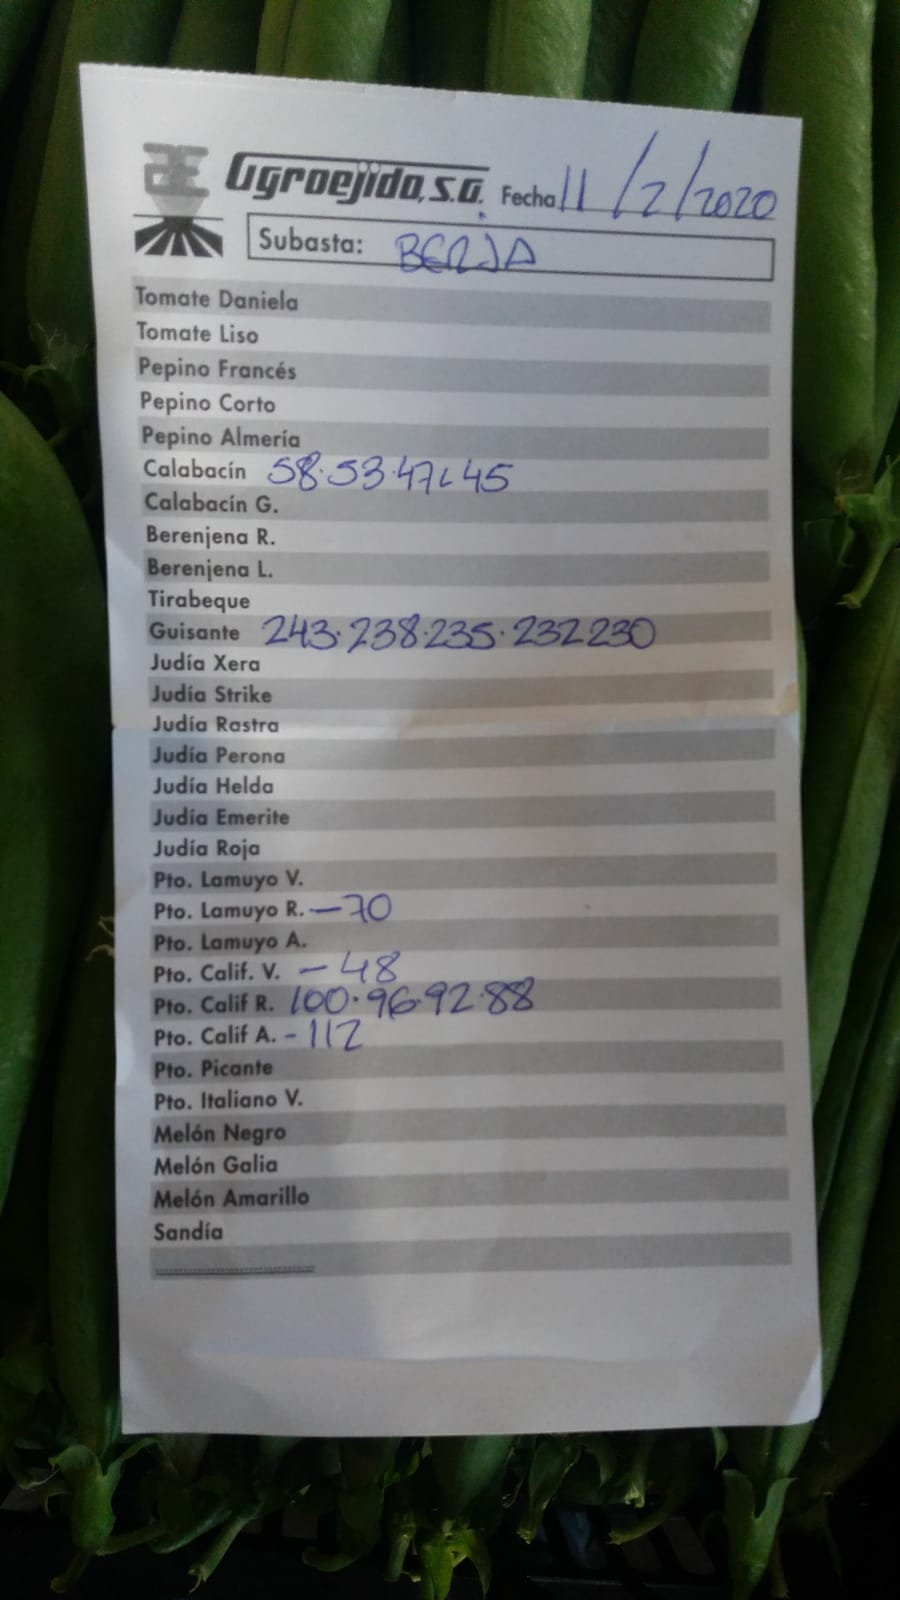 Agroejido, S.A. Fecha 11/2/2020
Subasta: BERJA
Tomate Daniela
Tomate Liso
Pepino Francés
Pepino Corto
Pepino Almería
Calabacín 58.53.47.45
Calabacín G.
Berenjena R.
Berenjena L.
Tirabeque
Guisante 243.238.235.232 230
Judía Xera
Judía Strike
Judía Rastra
Judía Perona
Judía Helda
Judía Emerite
Judía Roja
Pto. Lamuyo V.
Pto. Lamuyo R. - 70
Pto. Lamuyo A.
Pto. Calif. V. - 48
Pto. Calif R. 100.96.92.88
Pto. Calif A. - 112
Pto. Picante
Pto. Italiano V.
Melón Negro
Melón Galia
Melón Amarillo
Sandía